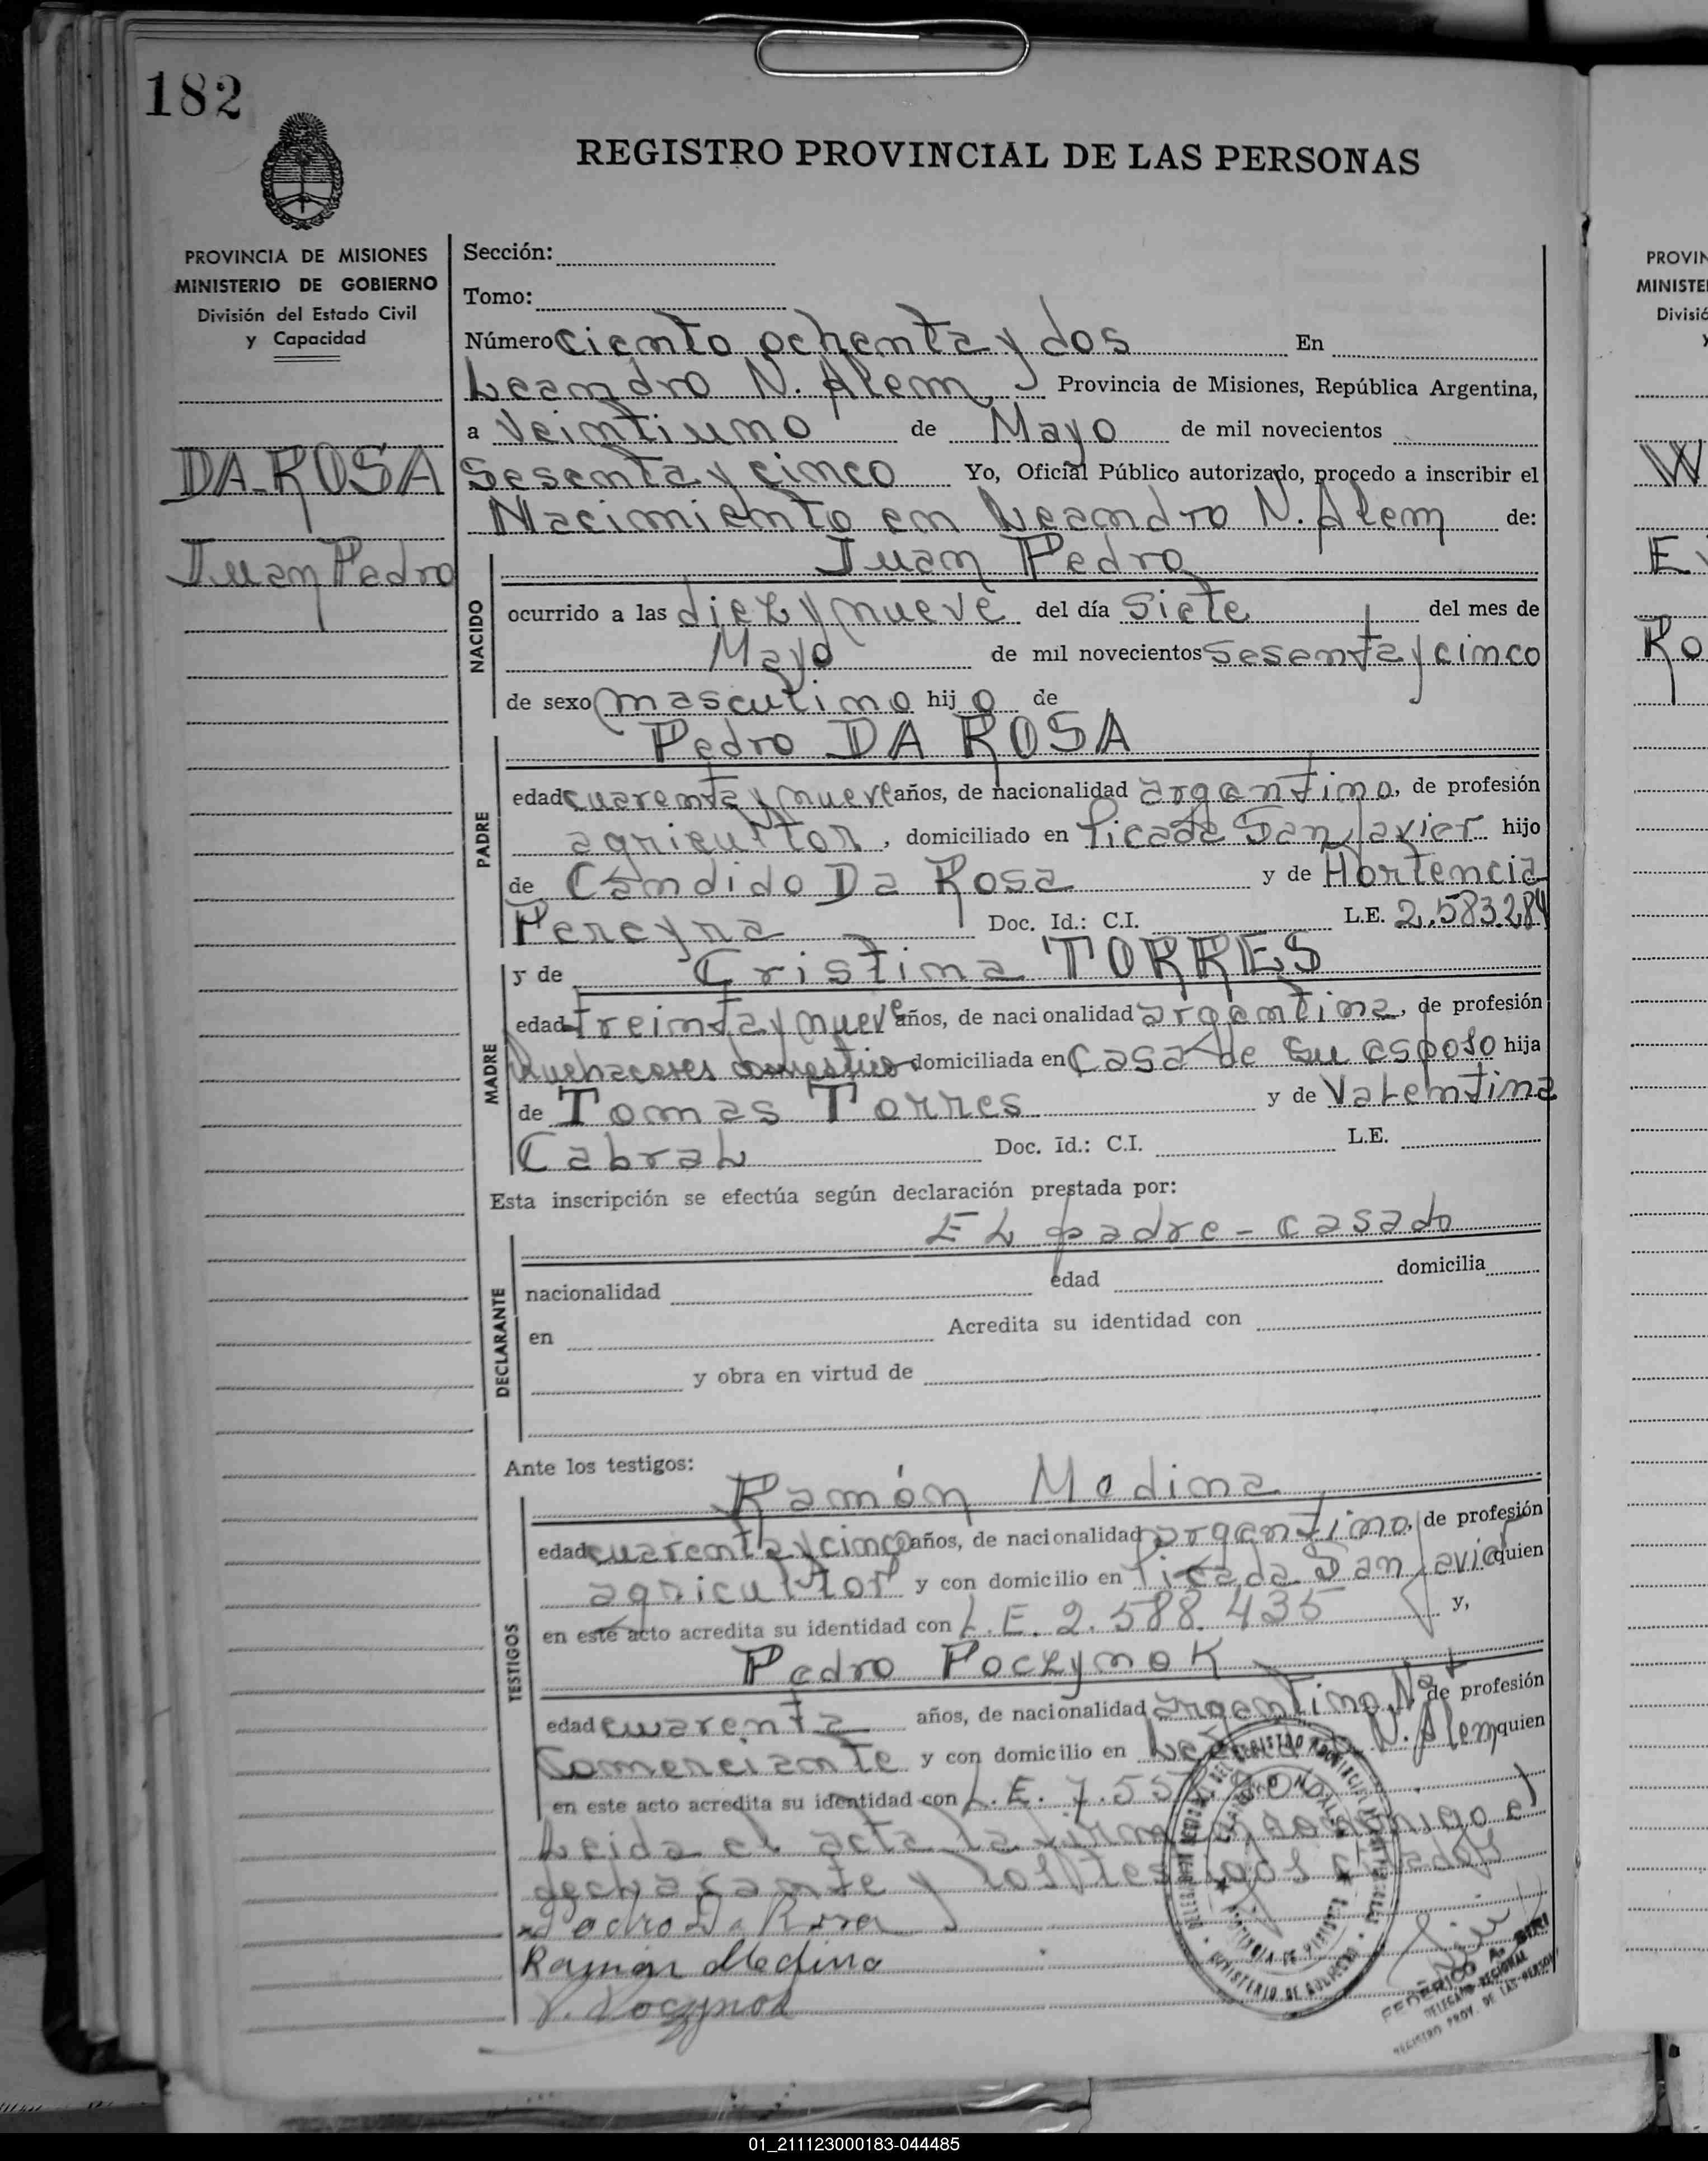 182
REGISTRO PROVINCIAL DE LAS PERSONAS
PROVINCIA DE MISIONES
MINISTERIO DE GOBIERNO
División del Estado Civil
y Capacidad
DA ROSA
Juan Pedro
Sección:
Tomo:
Número ciento ochenta y dos En
Leandro N. Alem Provincia de Misiones, República Argentina,
a Veintiuno de Mayo de mil novecientos
Sesenta y cinco Yo, Oficial Público autorizado, procedo a inscribir el
Nacimiento en Leandro N. Alem de:
Juan Pedro
NACIDO
ocurrido a las diez y nueve del día Siete del mes de
Mayo de mil novecientos Sesenta y cinco
de sexo masculino hijo de
Pedro DA ROSA
PADRE
edad cuarenta y nueve años, de nacionalidad argentino, de profesión
agricultor, domiciliado en Picada San Javier hijo
de Candido Da Rosa y de Hortencia
Pereyra Doc. Id.: C.I. L.E. 2.583.284
y de Cristina TORRES
MADRE
edad Treinta y nueve años, de nacionalidad argentina, de profesión
Quehaceres domestico domiciliada en Casa de su esposo hija
de Tomas Torres y de Valentina
Cabral Doc. Id.: C.I. L.E.
Esta inscripción se efectúa según declaración prestada por:
El padre - casado
DECLARANTE
nacionalidad edad domicilia
en Acredita su identidad con
y obra en virtud de
Ante los testigos:
Ramón Medina
TESTIGOS
edad cuarenta y cinco años, de nacionalidad argentino, de profesión
agricultor y con domicilio en Picada San Javier quien
en este acto acredita su identidad con L.E. 2.588.435 y,
Pedro Poczynok
edad cuarenta años, de nacionalidad argentino Nat de profesión
Comerciante y con domicilio en Leandro N. Alem quien
en este acto acredita su identidad con L.E. 7.55
Leida el acta la firman conmigo el
declarante y los testigos citados
Pedro Da Rosa
Ramón Medina
P. Poczynok
MINISTERIO DE GOBIERNO
FEDERICO A. BIRI
DELEGADO REGIONAL
REGISTRO PROV. DE LAS PERSONAS
PROVIN
MINISTE
Divisió
y
W
Ev
Ro
01_211123000183-044485